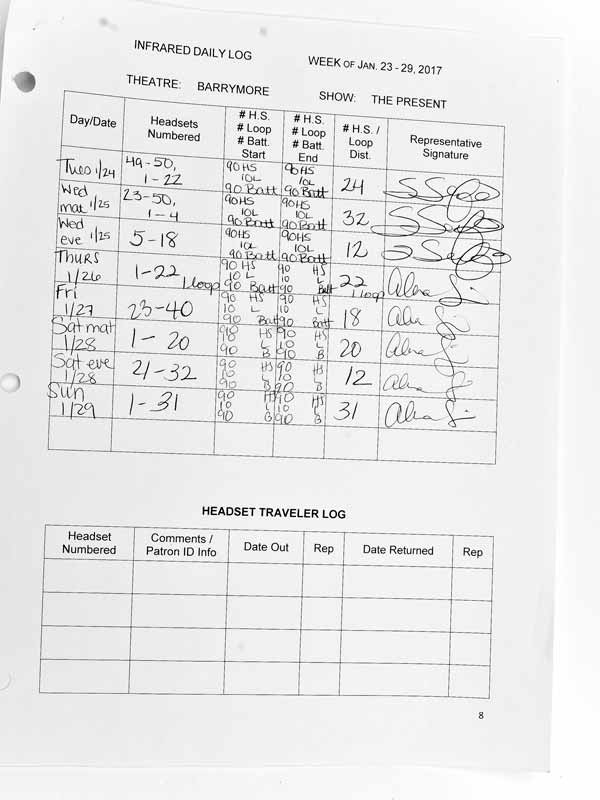 INFRARED DAILY LOG WEEK OF JAN. 23 - 29, 2017
THEATRE: BARRYMORE SHOW: THE PRESENT
Day/Date Headsets Numbered # H.S. # Loop # Batt. Start # H.S. # Loop # Batt. End # H.S. / Loop Dist. Representative Signature
Tues 1/24 49-50, 1-22 90 HS 10L 90 Batt 90 HS 10L 90 Batt 24
Wed mat 1/25 23-50, 1-4 90HS 10L 90 Batt 90HS 10L 90 Batt 32
Wed eve 1/25 5-18 90HS 10L 90 Batt 90HS 10L 90 Batt 12
THURS 1/26 1-22 1 loop 90 HS 10 L 90 Batt 90 HS 10 L 90 Batt 22 1 loop
Fri 1/27 23-40 90 HS 10 L 90 Batt 90 HS 10 L 90 Batt 18
Sat mat 1/28 1-20 90 HS 10 L 90 B 90 HS 10 L 90 B 20
Sat eve 1/28 21-32 90 HS 10 L 90 B 90 HS 10 L 90 B 12
Sun 1/29 1-31 90 HS 10 L 90 B 90 HS 10 L 90 B 31
HEADSET TRAVELER LOG
Headset Numbered Comments / Patron ID Info Date Out Rep Date Returned Rep
8